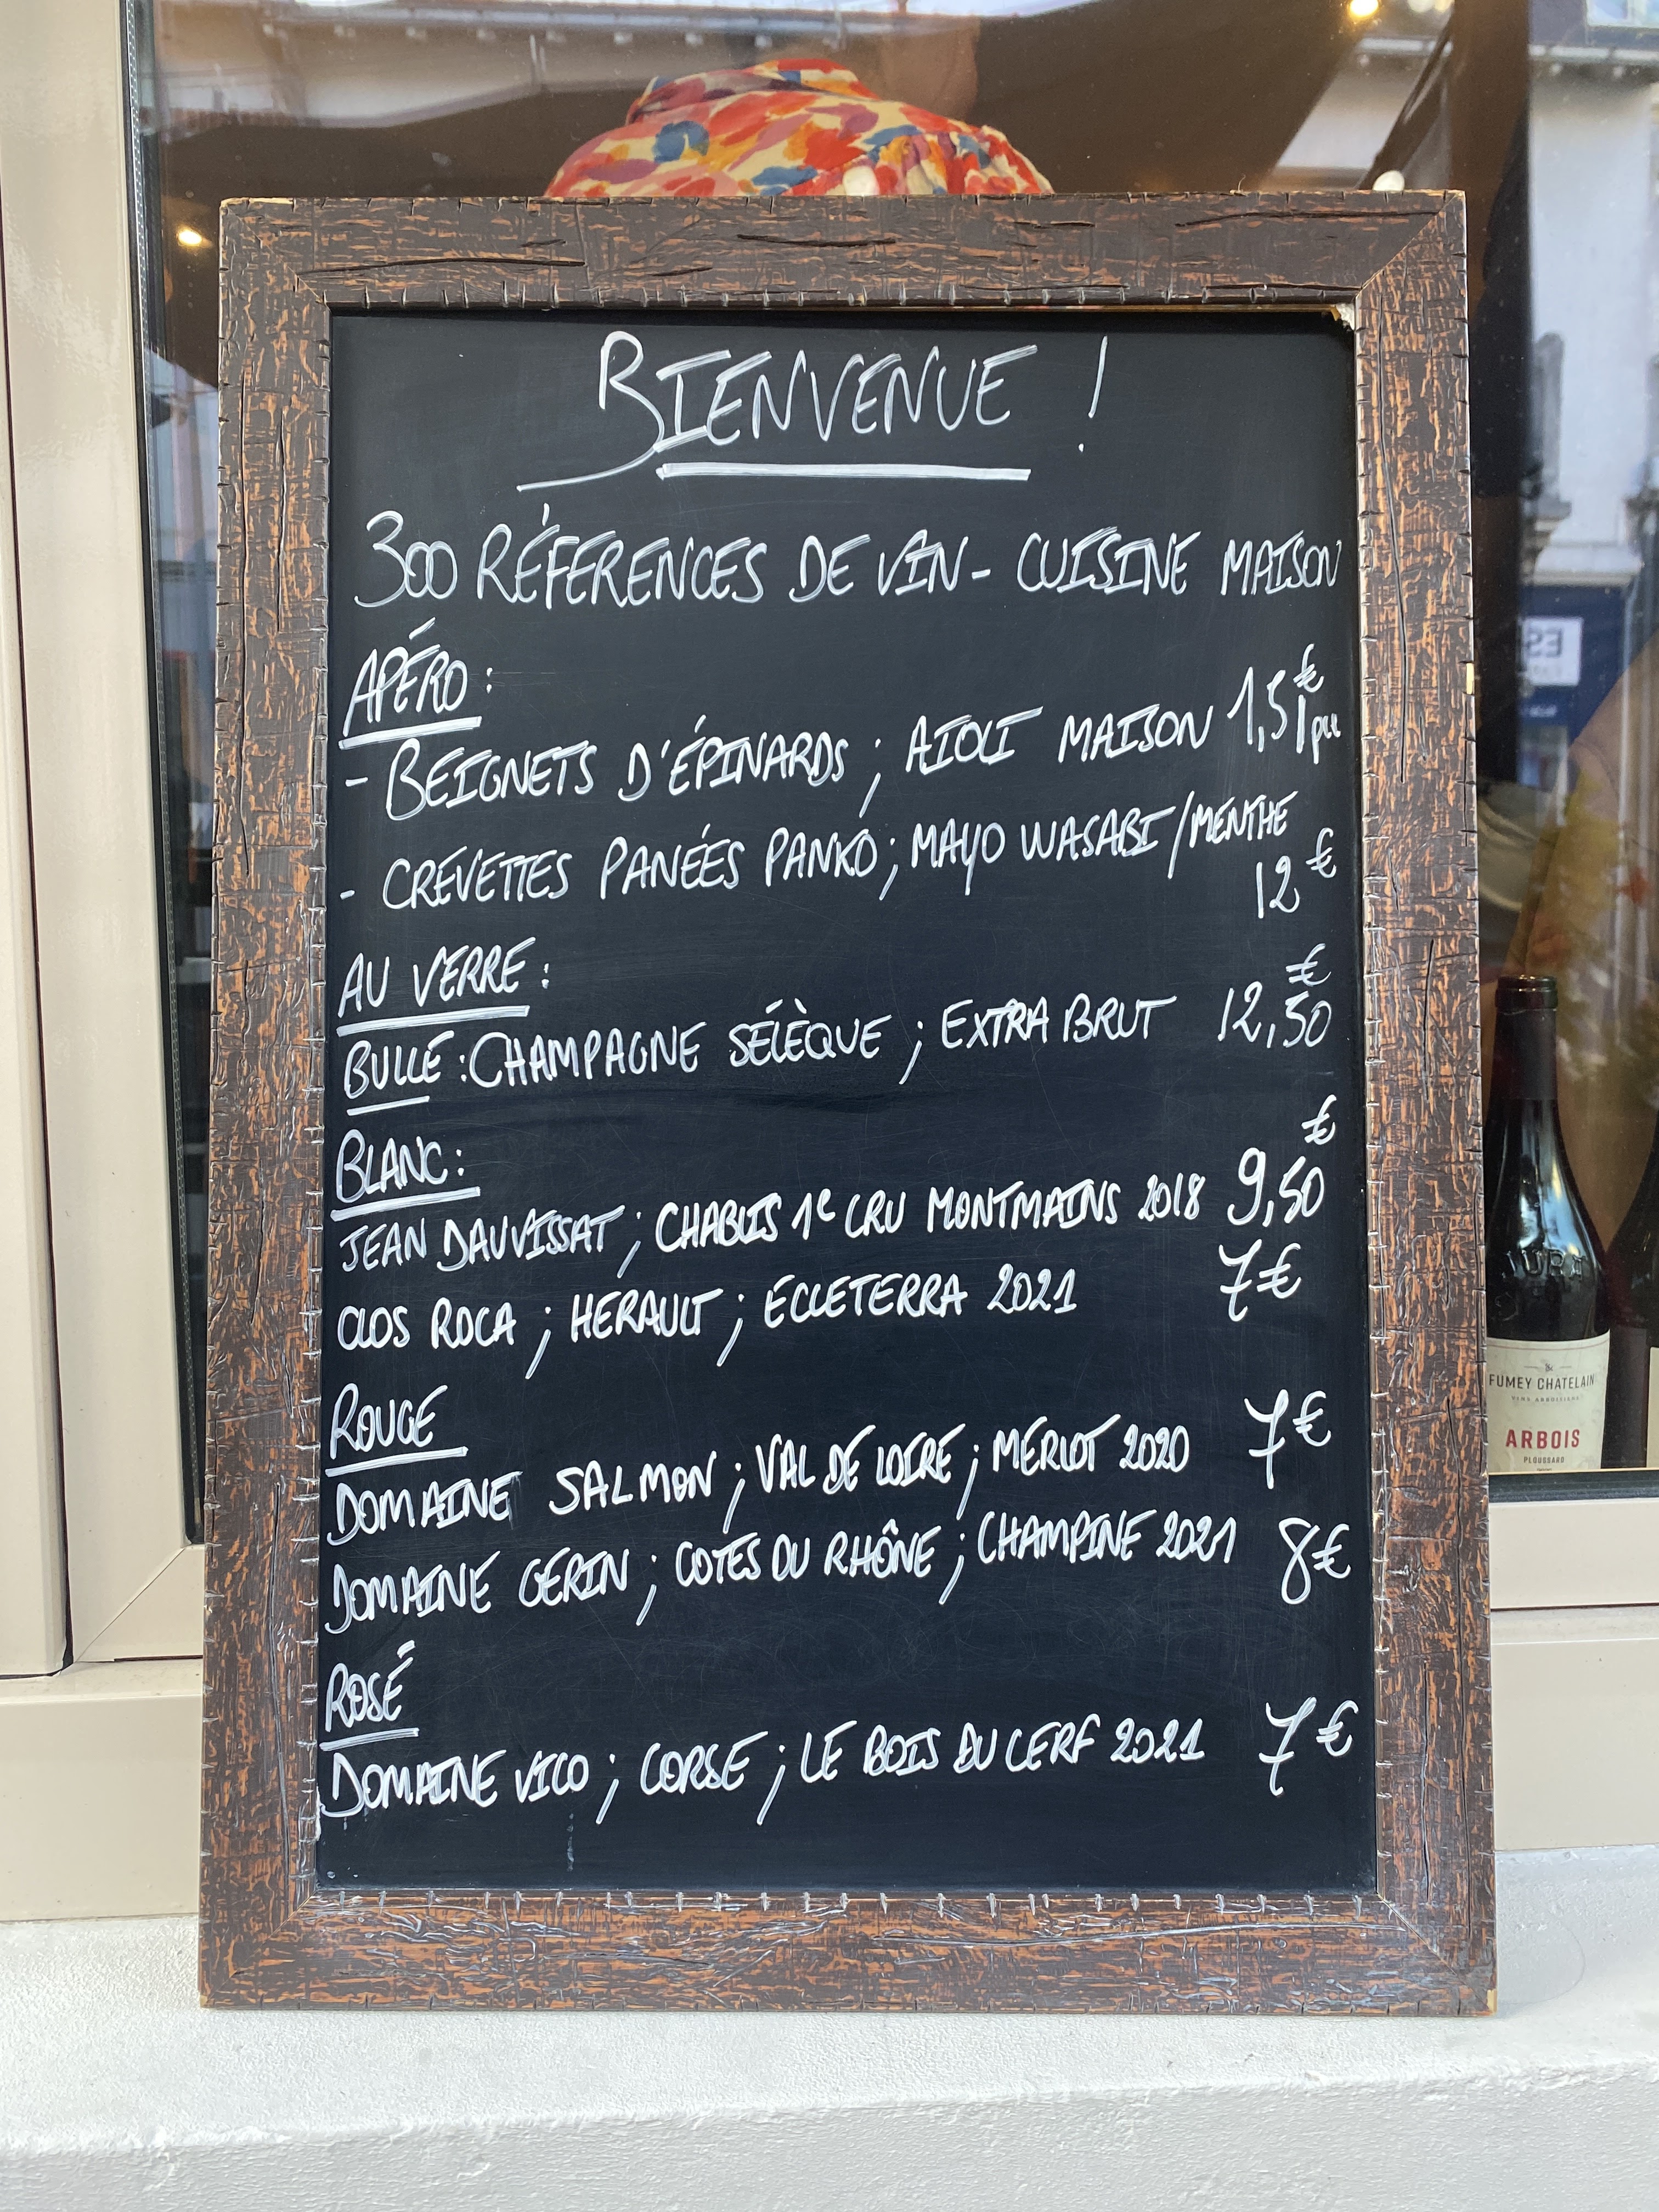 BIENVENUE !
300 RÉFERENCES DE VIN - CUISINE MAISON
APÉRO :
- BEIGNETS D'ÉPINARDS ; AIOLI MAISON 1,5€ / pce
- CREVETTES PANÉES PANKO ; MAYO WASABI / MENTHE
12€
AU VERRE :
BULLE : CHAMPAGNE SÉLÈQUE ; EXTRA BRUT 12,50€
BLANC :
JEAN DAUVISSAT ; CHABLIS 1e CRU MONTMAINS 2018 9,50€
CLOS ROCA ; HERAULT ; ECLETERRA 2021 7€
ROUGE
DOMAINE SALMON ; VAL DE LOIRE ; MERLOT 2020 7€
DOMAINE GERIN ; COTES DU RHÔNE ; CHAMPINE 2021 8€
ROSÉ
DOMAINE VICO ; CORSE ; LE BOIS DU CERF 2021 7€
JURA
FUMEY CHATELAIN
VINS ARBOISIENS
ARBOIS
PLOUSSARD